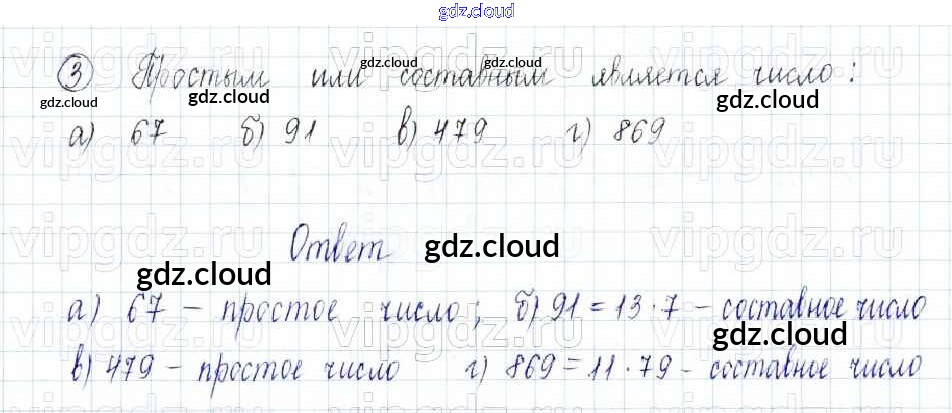 gdz.cloud
③ Простым или составным является число:
gdz.cloud gdz.cloud gdz.cloud gdz.cloud gdz.cloud
а) 67 б) 91 в) 479 г) 869
vipgdz.ru vipgdz.ru vipgdz.ru
Ответ gdz.cloud
gdz.cloud
а) 67 – простое число; б) 91 = 13 · 7 – составное число
gdz.cloud
в) 479 – простое число г) 869 = 11 · 79 – составное число